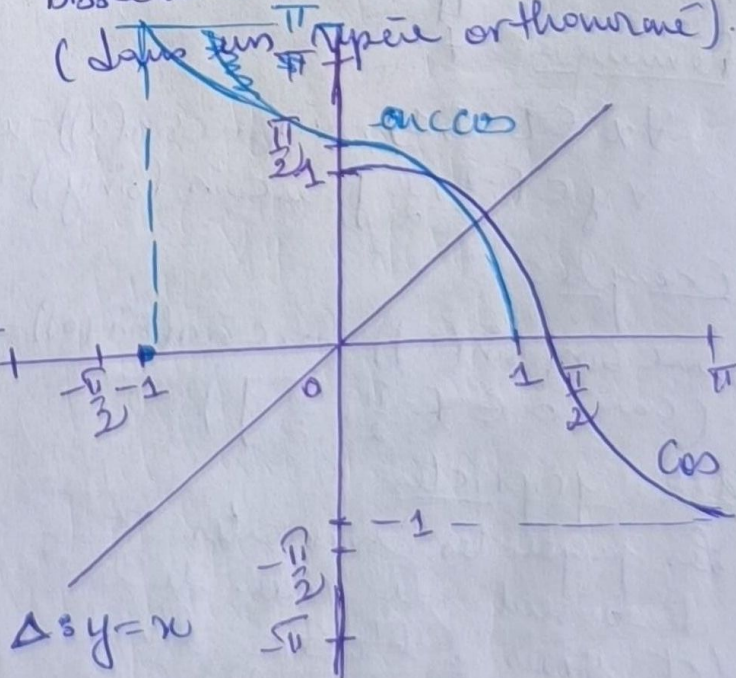 π
(dans un repère orthonormé).
π
arccos
π/2
1
-π/2 -1
0
1
π/2
π
Cos
-1
-π/2
-π
Δ: y = x